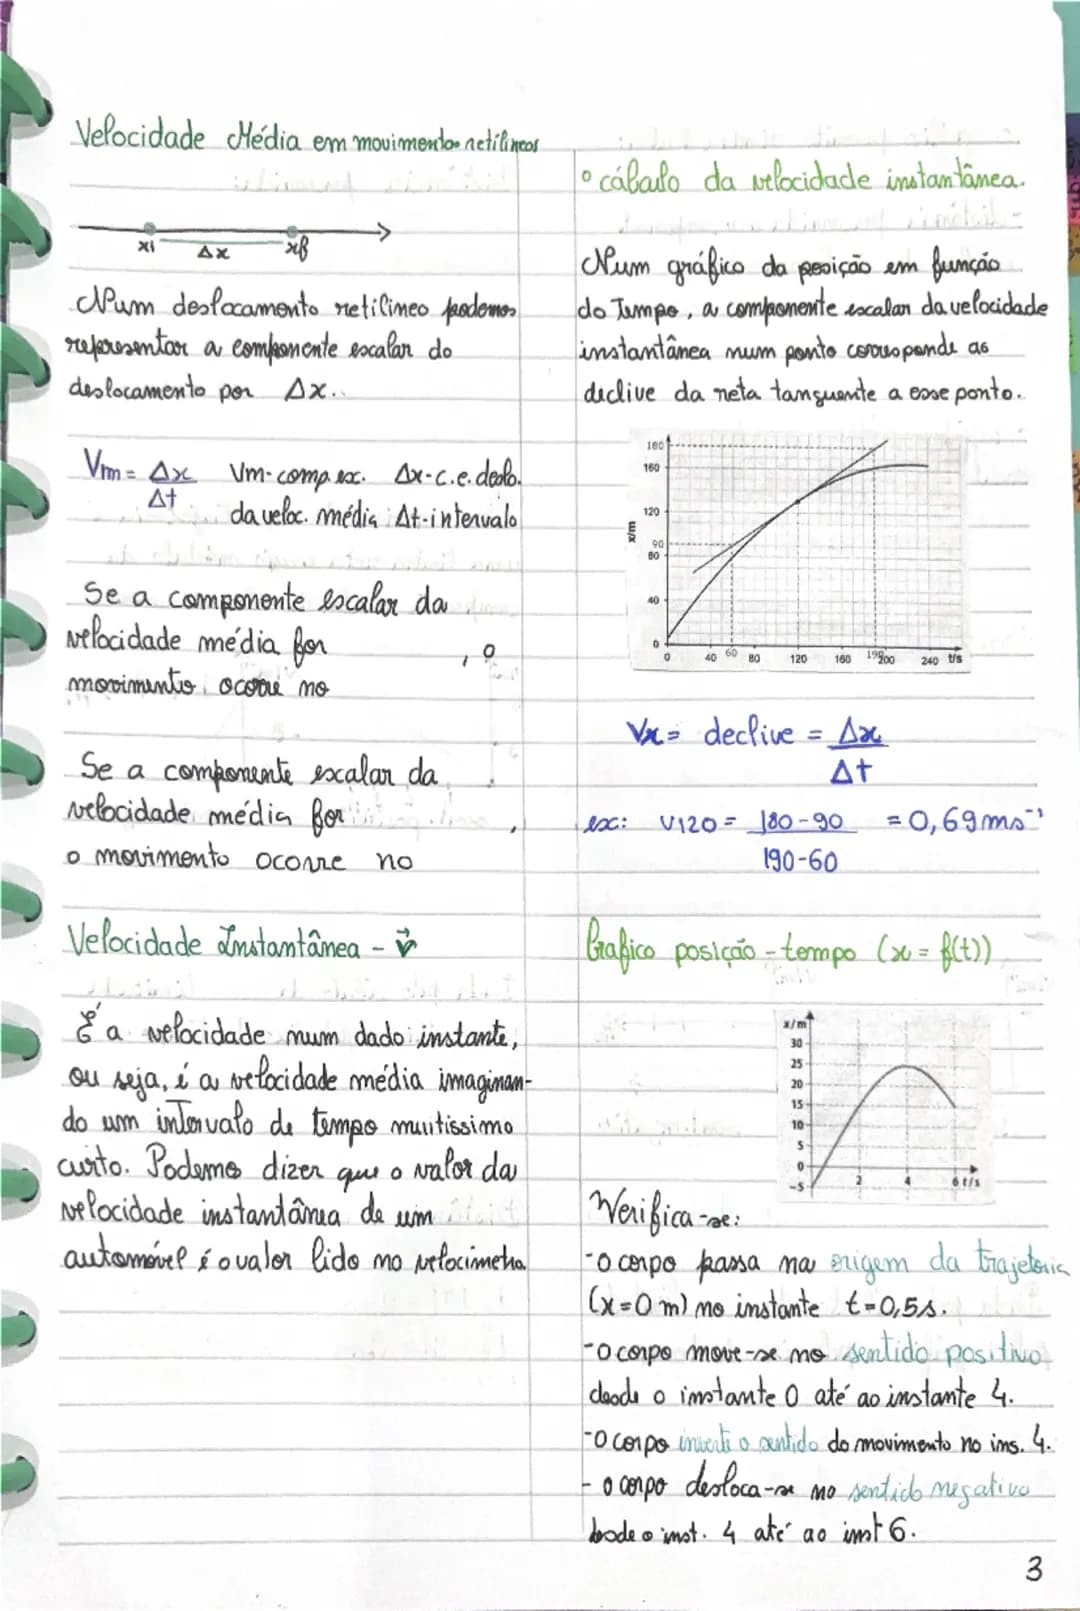 Velocidade Média em movimentos retilíneos
xi Δx xf
Num deslocamento retilineo podemos
representar a componente escalar do
deslocamento por Δx.
Vm = Δx Vm-comp. esc. Δx-c.e. deslo.
Δt da veloc. média Δt-intervalo
Se a componente escalar da
velocidade média for , o
movimento ocorre no
Se a componente escalar da
velocidade média for ,
o movimento ocorre no
Velocidade Instantânea - v⃗
É a velocidade num dado instante,
ou seja, é a velocidade média imaginan-
do um intervalo de tempo muitissimo
curto. Podemos dizer que o valor da
velocidade instantânea de um
automóvel é o valor lido no velocimetro.
° cálculo da velocidade instantânea.
Num gráfico da posição em função
do Tempo, a componente escalar da velocidade
instantânea num ponto corresponde ao
declive da reta tanguente a esse ponto.
180
160
120
90
80
40
0
x/m
0 40 60 80 120 160 190 200 240 t/s
Vx = declive = Δx
Δt
ex: V120 = 180-90 = 0,69 ms⁻¹
190-60
Gráfico posição-tempo (x = f(t))
x/m
30
25
20
15
10
5
0
-5
2 4 6 t/s
Verifica-se:
- o corpo passa na origem da trajetoria
(x=0 m) no instante t=0,5s.
- o corpo move-se no sentido positivo
desde o instante 0 até ao instante 4.
- o corpo inverte o sentido do movimento no ins. 4.
- o corpo desloca-se no sentido negativo
desde o inst. 4 até ao inst 6.
3